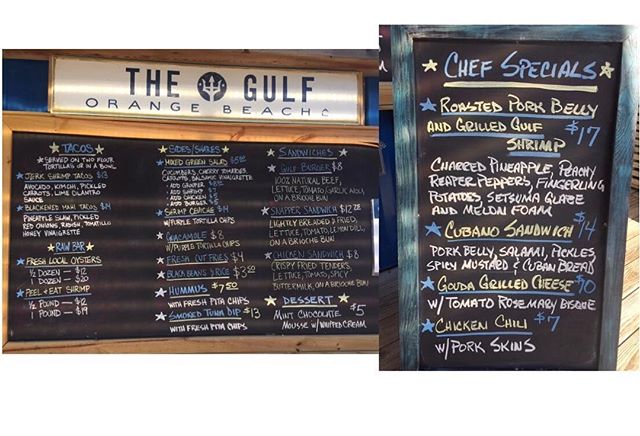 THE GULF
ORANGE BEACH
TACOS
SERVED ON TWO FLOUR
TORTILLA'S OR IN A BOWL
JERK SHRIMP TACOS $13
AVOCADO, KIMCHI, PICKLED
CARROTS, LIME CILANTRO
SAUCE
BLACKENED MAHI TACOS $14
PINEAPPLE SLAW, PICKLED
RED ONIONS, RADISH, TOMATILLO
HONEY VINAIGRETTE
RAW BAR
FRESH LOCAL OYSTERS
1/2 DOZEN - $12
1 DOZEN - $20
PEEL + EAT SHRIMP
1/2 POUND - $12
1 POUND - $19
SIDES/SHARES
MIXED GREEN SALAD
CUCUMBERS, CHERRY TOMATOES,
CARROTS, BALSAMIC VINAIGRETTE
• ADD GROUPER
• ADD SHRIMP
• ADD CHICKEN
• ADD BURGER
SHRIMP CEVICHE $14
W/PURPLE TORTILLA CHIPS
GUACAMOLE $8
W/PURPLE TORTILLA CHIPS
FRESH CUT FRIES $4
BLACK BEANS & RICE $3.50
HUMMUS $7.50
WITH FRESH PITA CHIPS
SMOKED TUNA DIP $13
WITH FRESH PITA CHIPS
SANDWICHES
GULF BURGER $8
100% NATURAL BEEF,
LETTUCE, TOMATO, GARLIC AIOLI,
ON A BRIOCHE BUN
SNAPPER SANDWICH
LIGHTLY BREADED & FRIED,
LETTUCE, TOMATO, LEMON DILL,
ON A BRIOCHE BUN
CHICKEN SANDWICH $8
CRISPY FRIED TENDERS,
LETTUCE, TOMATO, SPICY
BUTTERMILK, ON A BRIOCHE BUN
DESSERT
MINT CHOCOLATE $5
MOUSSE W/WHIPPED CREAM
CHEF SPECIALS
ROASTED PORK BELLY
AND GRILLED GULF $17
SHRIMP
CHARRED PINEAPPLE, PEACHY
REAPER PEPPERS, FINGERLING
POTATOES, SETSUMA GLAZE
AND MELON FOAM
CUBANO SANDWICH $14
PORK BELLY, SALAMI, PICKLES,
SPICY MUSTARD & CUBAN BREAD
GOUDA GRILLED CHEESE $10
W/TOMATO ROSEMARY BISQUE
CHICKEN CHILI $7
W/PORK SKINS